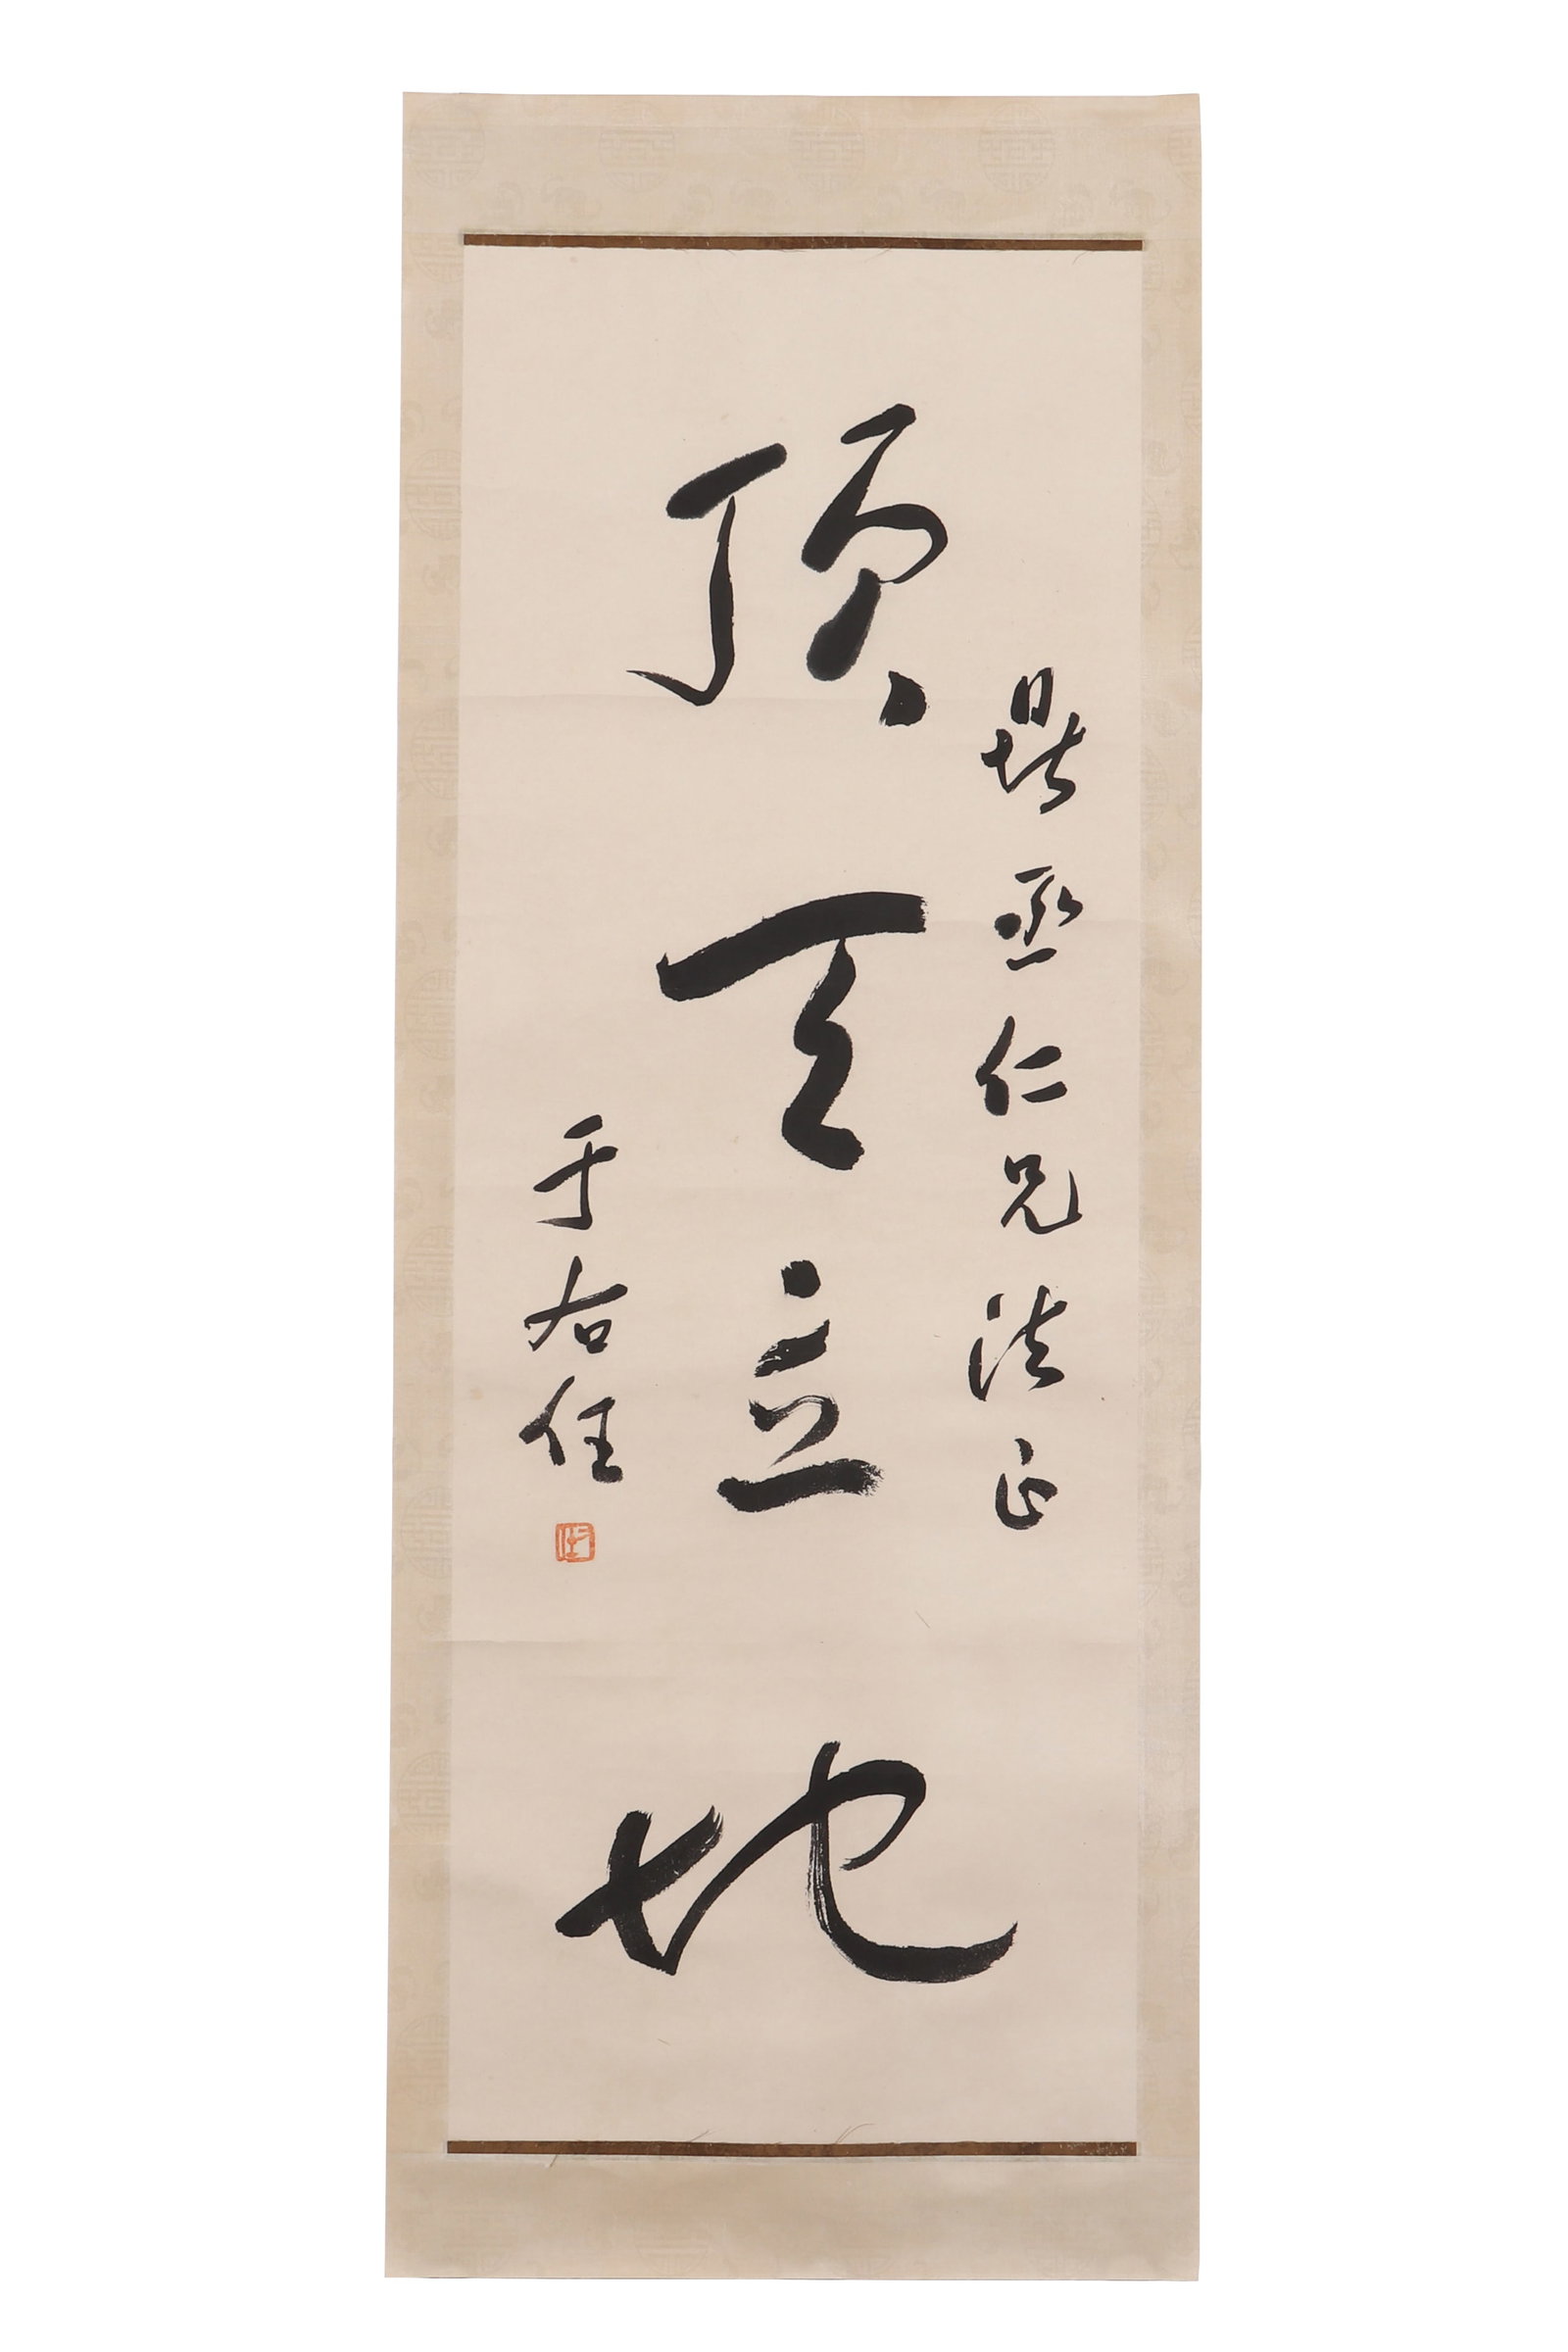 鼎丞仁兄法正
頂天立地
于右任